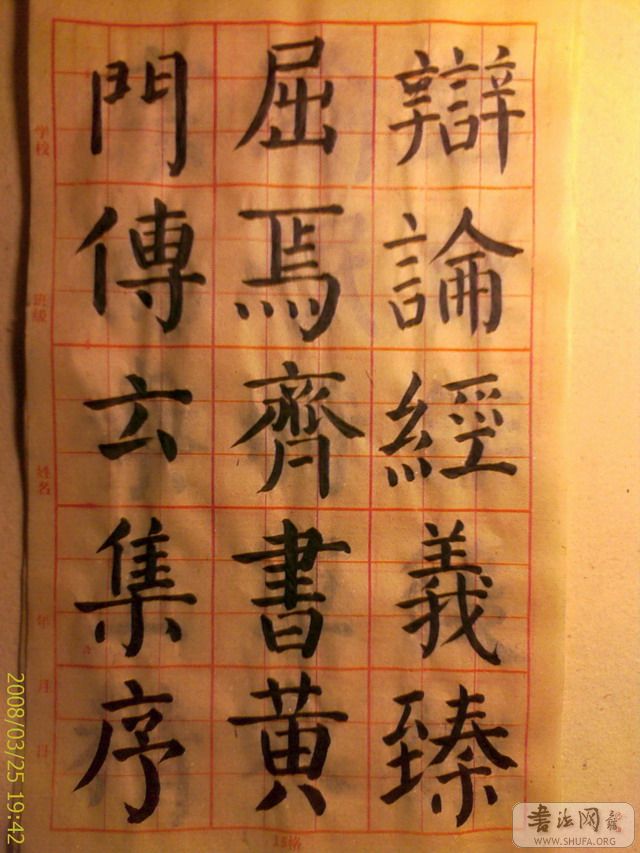 辯論經義臻
屈焉齊書黃
門傳云集序
学校
班级
姓名
年
月
日
2008/03/25 19:42
書法网
WWW.SHUFA.ORG